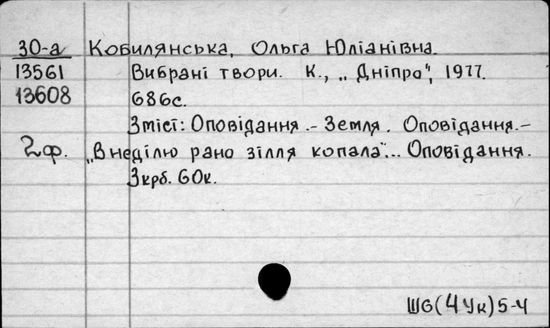 30-а Кобилянська, Ольга Юліанівна.
13561 Вибрані твори. К., „Дніпро", 1977.
13608 686с.
Зміст: Оповідання.- Земля. Оповідання.-
2ф. „В неділю рано зілля копала"... Оповідання.
3крб. 60к.
Ш6(4Ук)5-4